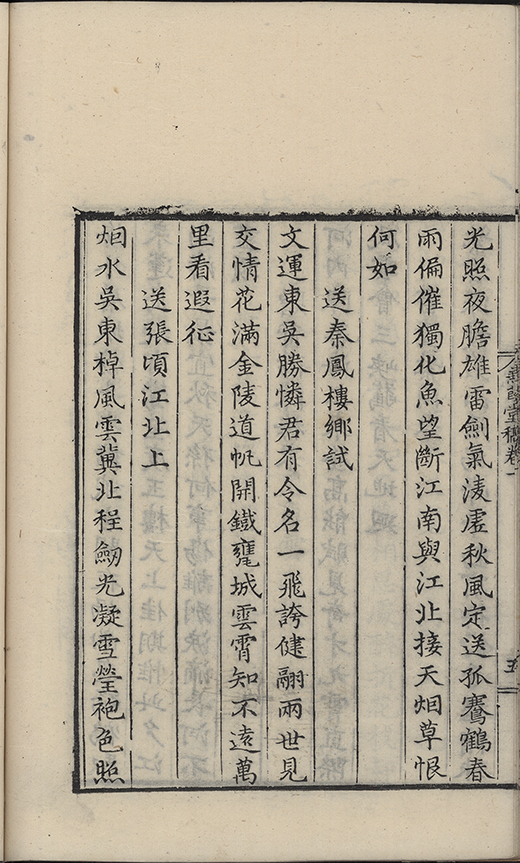 光照夜膽雄雷劍氣淩虛秋風定送孤騫鶴春
雨偏催獨化魚望斷江南與江北接天烟草恨
何如
送秦鳳樓鄉試
文運東吳勝憐君有令名一飛誇健翮兩世見
交情花滿金陵道帆開鐵甕城雲霄知不遠萬
里看遐征
送張頃江北上
烟水吳東棹風雲冀北程劒光凝雪瑩袍色照
五